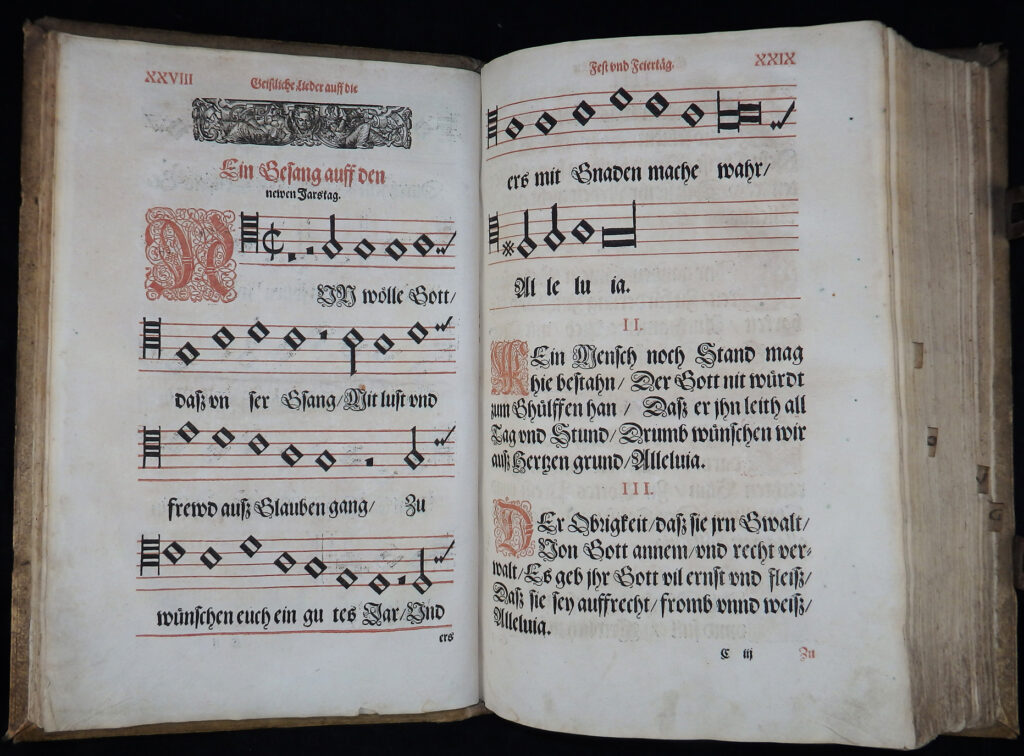 XXVIII
Geistliche Lieder auff die
Ein Gesang auff den
newen Jarstag.
NUN wölle Gott/
daß vn ser Gsang/ Mit lust vnd
frewd auß Glauben gang/ Zu
wünschen euch ein gu tes Jar/ Vnd
ers
Fest vnd Feiertäg.
XXIX
ers mit Gnaden mache wahr/
Al le lu ia.
II.
KEin Mensch noch Stand mag
hie bestahn/ Der Gott nit würdt
zum Ghülffen han/ Daß er jhn leith all
Tag vnd Stund/ Drumb wünschen wir
auß Hertzen grund/ Alleluia.
III.
DEr Obrigkeit/ daß sie jrn Gwalt/
Von Gott annem/ vnd recht ver-
walt/ Es geb jhr Gott vil ernst vnd fleiß/
Daß sie sey auffrecht/ fromb vnnd weiß/
Alleluia.
C iij
Zu